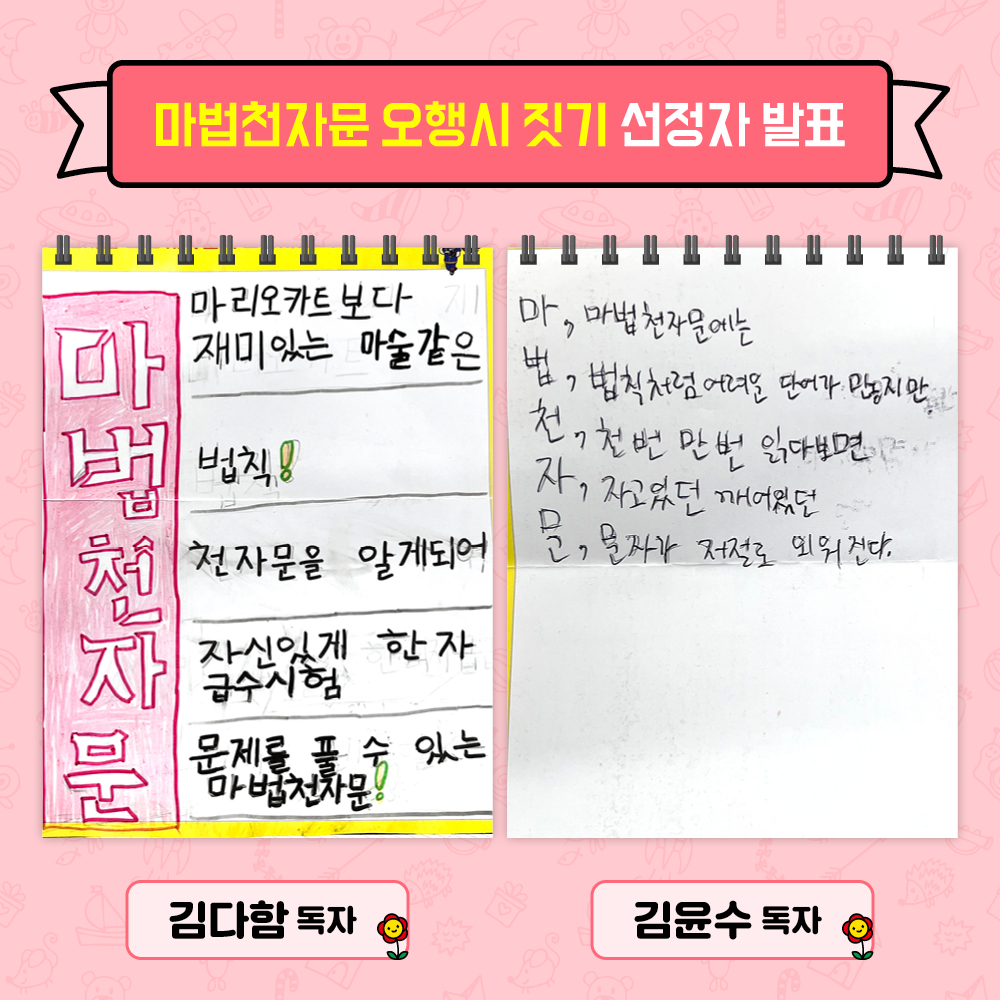 마법천자문 오행시 짓기 선정자 발표
마
법
천
자
문
마리오카트보다
재미있는 마술같은
법칙!
천자문을 알게되어
자신있게 한자
급수시험
문제를 풀 수 있는
마법천자문!
마, 마법천자문에는
법, 법칙처럼 어려운 단어가 많지만
천, 천번 만번 읽다보면
자, 자고있던 깨어있던
문, 문자가 저절로 외워진다.
김다함 독자
김윤수 독자